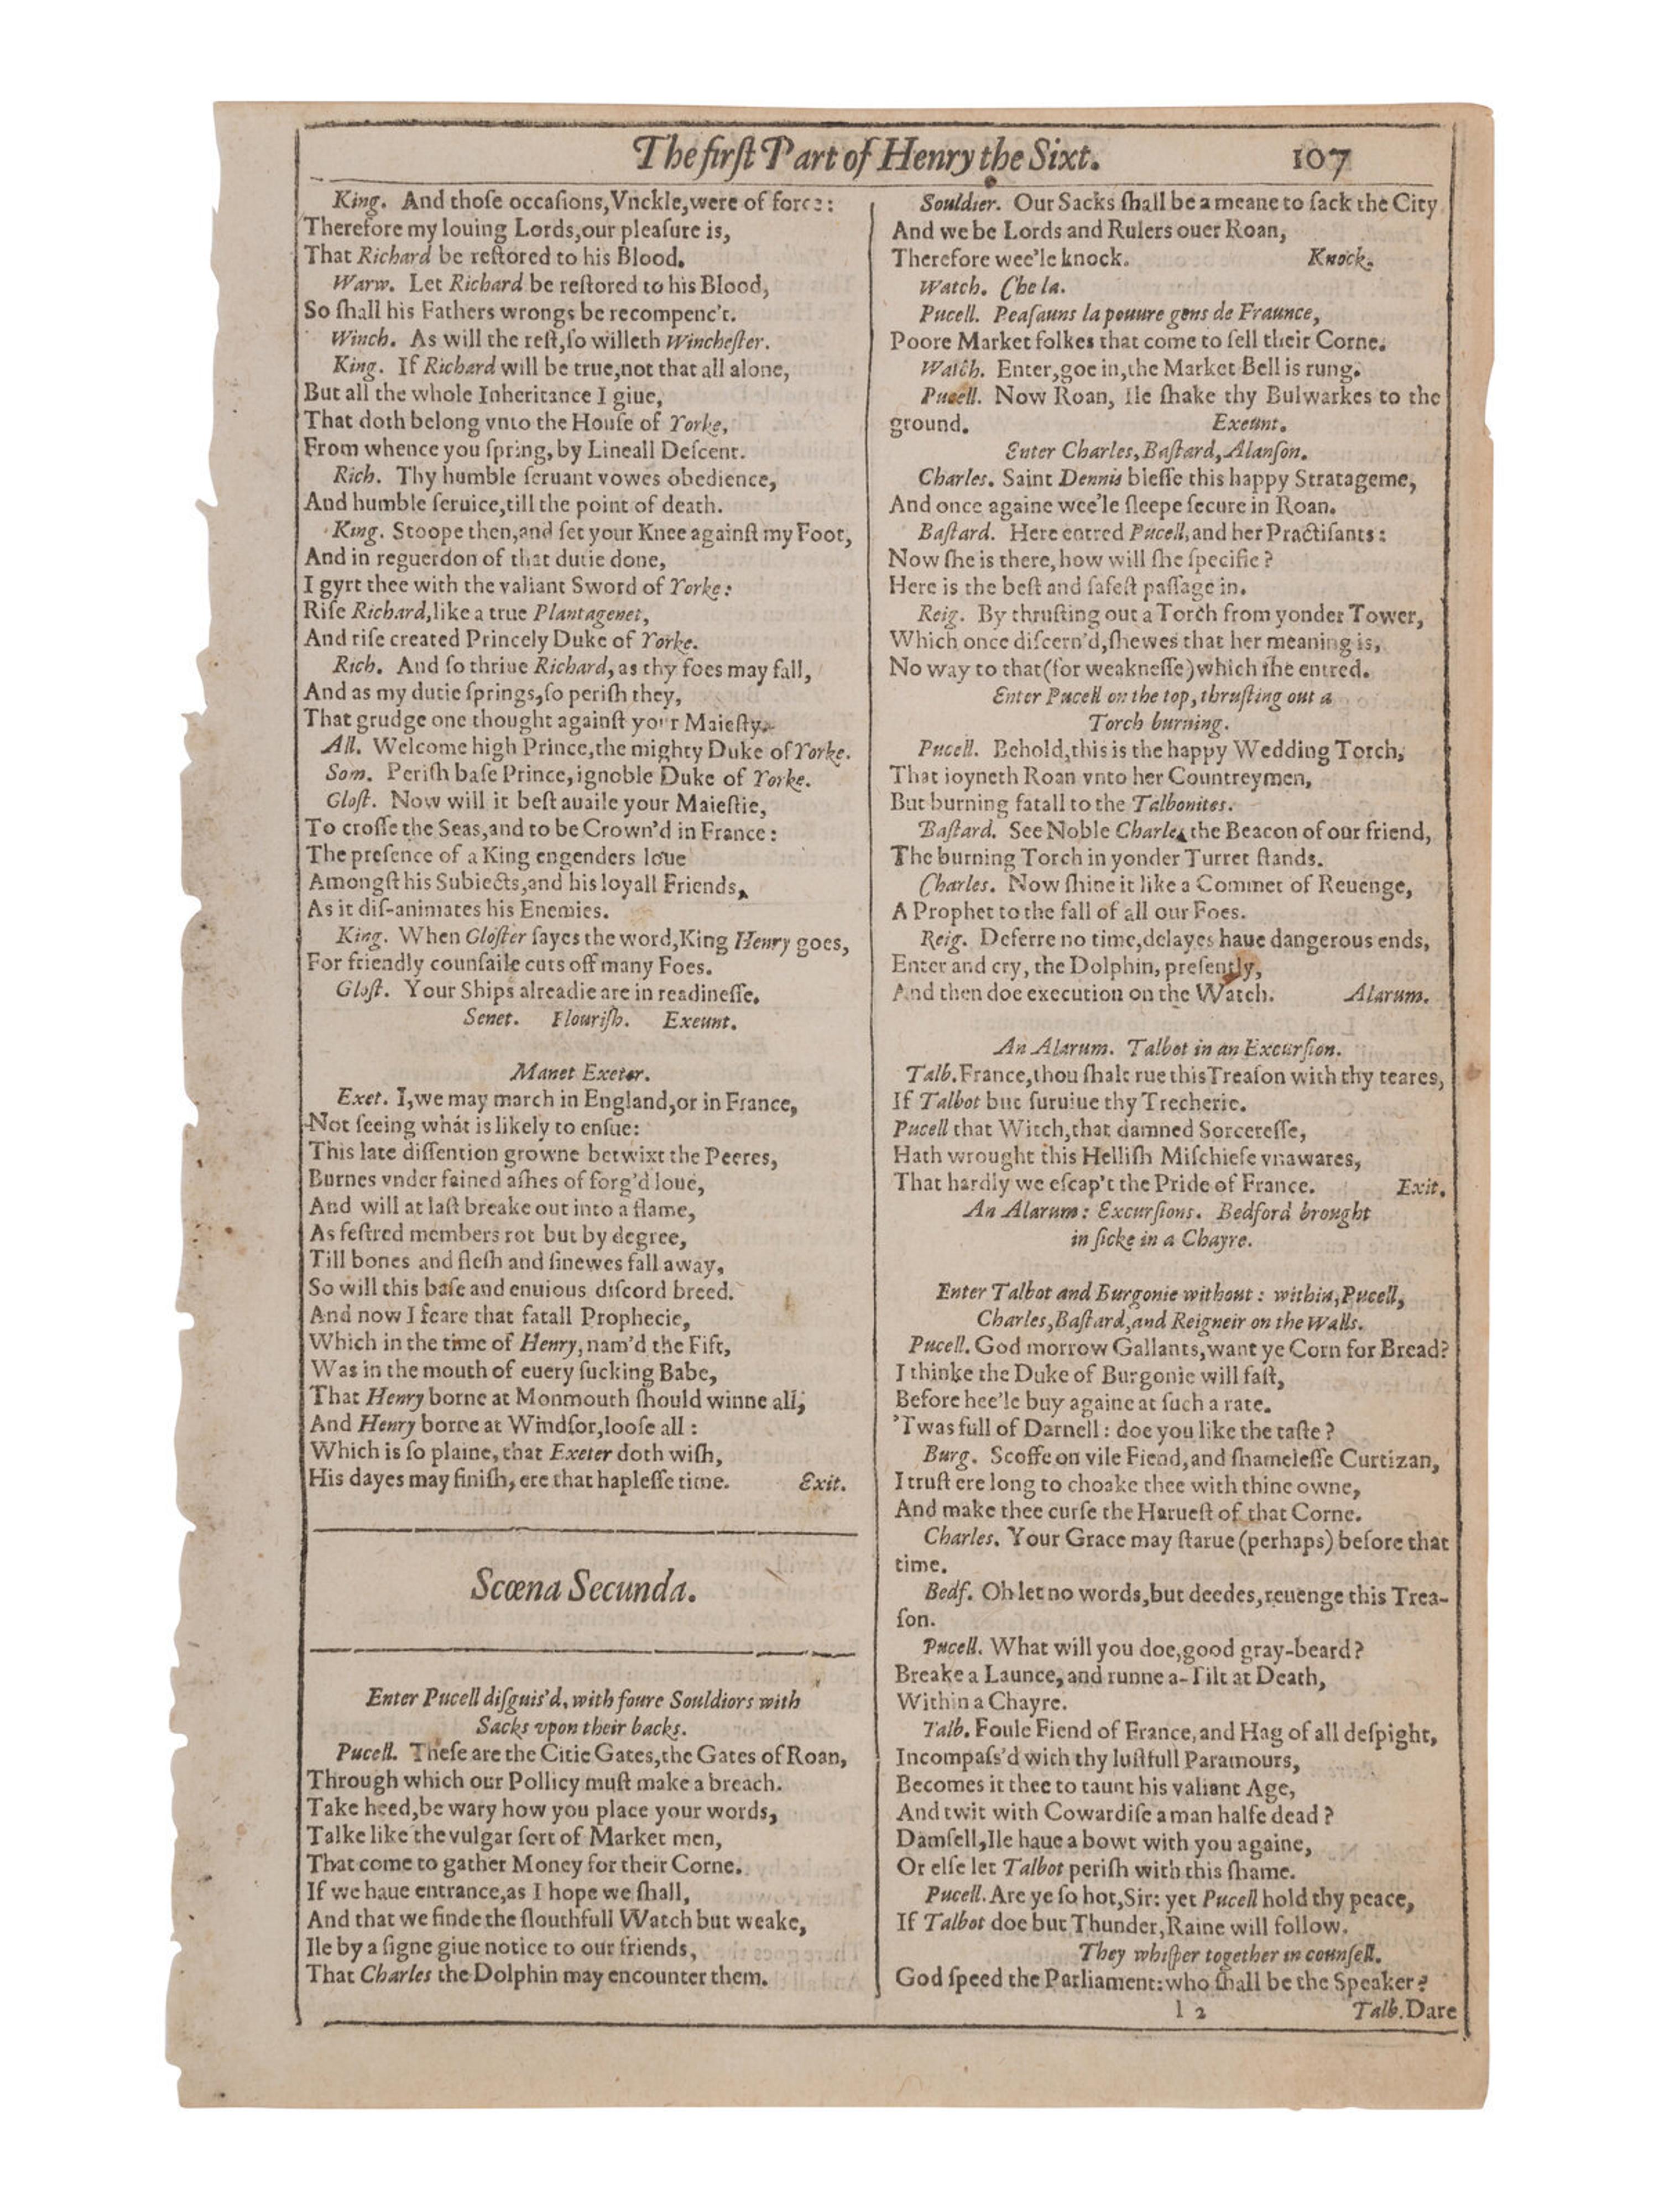 The firſt Part of Henry the Sixt. 107
King. And thoſe occaſions, Vnckle, were of force:
Therefore my louing Lords, our pleaſure is,
That Richard be reſtored to his Blood.
Warw. Let Richard be reſtored to his Blood,
So ſhall his Fathers wrongs be recompenc't.
Winch. As will the reſt, ſo willeth Wincheſter.
King. If Richard will be true, not that all alone,
But all the whole Inheritance I giue,
That doth belong vnto the Houſe of Yorke,
From whence you ſpring, by Lineall Deſcent.
Rich. Thy humble ſeruant vowes obedience,
And humble ſeruice, till the point of death.
King. Stoope then, and ſet your Knee againſt my Foot,
And in reguerdon of that dutie done,
I gyrt thee with the valiant Sword of Yorke:
Riſe Richard, like a true Plantagenet,
And riſe created Princely Duke of Yorke.
Rich. And ſo thriue Richard, as thy foes may fall,
And as my dutie ſprings, ſo periſh they,
That grudge one thought againſt your Maieſty.
All. Welcome high Prince, the mighty Duke of Yorke.
Som. Periſh baſe Prince, ignoble Duke of Yorke.
Gloſt. Now will it beſt auaile your Maieſtie,
To croſſe the Seas, and to be Crown'd in France:
The preſence of a King engenders loue
Amongſt his Subiects, and his loyall Friends,
As it diſ-animates his Enemies.
King. When Gloſter ſayes the word, King Henry goes,
For friendly counſaile cuts off many Foes.
Gloſt. Your Ships alreadie are in readineſſe.
Senet. Flouriſh. Exeunt.
Manet Exeter.
Exet. I, we may march in England, or in France,
Not ſeeing what is likely to enſue:
This late diſſention growne betwixt the Peeres,
Burnes vnder fained aſhes of forg'd loue,
And will at laſt breake out into a flame,
As feſtred members rot but by degree,
Till bones and fleſh and ſinewes fall away,
So will this baſe and enuious diſcord breed.
And now I feare that fatall Prophecie,
Which in the time of Henry, nam'd the Fift,
Was in the mouth of euery ſucking Babe,
That Henry borne at Monmouth ſhould winne all,
And Henry borne at Windſor, looſe all:
Which is ſo plaine, that Exeter doth wiſh,
His dayes may finiſh, ere that hapleſſe time. Exit.
Scœna Secunda.
Enter Pucell diſguis'd, with foure Souldiors with
Sacks vpon their backs.
Pucell. Theſe are the Citie Gates, the Gates of Roan,
Through which our Pollicy muſt make a breach.
Take heed, be wary how you place your words,
Talke like the vulgar ſort of Market men,
That come to gather Money for their Corne.
If we haue entrance, as I hope we ſhall,
And that we finde the ſlouthfull Watch but weake,
Ile by a ſigne giue notice to our friends,
That Charles the Dolphin may encounter them.
Souldier. Our Sacks ſhall be a meane to ſack the City
And we be Lords and Rulers ouer Roan,
Therefore wee'le knock. Knock.
Watch. Che la.
Pucell. Peaſauns la pouure gens de Fraunce,
Poore Market folkes that come to ſell their Corne.
Watch. Enter, goe in, the Market Bell is rung.
Pucell. Now Roan, Ile ſhake thy Bulwarkes to the
ground. Exeunt.
Enter Charles, Baſtard, Alanſon.
Charles. Saint Dennis bleſſe this happy Stratageme,
And once againe wee'le ſleepe ſecure in Roan.
Baſtard. Here entred Pucell, and her Practiſants:
Now ſhe is there, how will ſhe ſpecifie?
Here is the beſt and ſafeſt paſſage in.
Reig. By thruſting out a Torch from yonder Tower,
Which once diſcern'd, ſhewes that her meaning is,
No way to that (for weakneſſe) which ſhe entred.
Enter Pucell on the top, thruſting out a
Torch burning.
Pucell. Behold, this is the happy Wedding Torch,
That ioyneth Roan vnto her Countreymen,
But burning fatall to the Talbonites.
Baſtard. See Noble Charles the Beacon of our friend,
The burning Torch in yonder Turret ſtands.
Charles. Now ſhine it like a Commet of Reuenge,
A Prophet to the fall of all our Foes.
Reig. Deferre no time, delayes haue dangerous ends,
Enter and cry, the Dolphin, preſently,
And then doe execution on the Watch. Alarum.
An Alarum. Talbot in an Excurſion.
Talb. France, thou ſhalt rue this Treaſon with thy teares,
If Talbot but ſuruiue thy Trecherie.
Pucell that Witch, that damned Sorcereſſe,
Hath wrought this Helliſh Miſchiefe vnawares,
That hardly we eſcap't the Pride of France. Exit.
An Alarum: Excurſions. Bedford brought
in ſicke in a Chayre.
Enter Talbot and Burgonie without: within, Pucell,
Charles, Baſtard, and Reigneir on the Walls.
Pucell. God morrow Gallants, want ye Corn for Bread?
I thinke the Duke of Burgonie will faſt,
Before hee'le buy againe at ſuch a rate.
'Twas full of Darnell: doe you like the taſte?
Burg. Scoffe on vile Fiend, and ſhameleſſe Curtizan,
I truſt ere long to choake thee with thine owne,
And make thee curſe the Harueſt of that Corne.
Charles. Your Grace may ſtarue (perhaps) before that
time.
Bedf. Oh let no words, but deedes, reuenge this Trea-
ſon.
Pucell. What will you doe, good gray-beard?
Breake a Launce, and runne a-Tilt at Death,
Within a Chayre.
Talb. Foule Fiend of France, and Hag of all deſpight,
Incompaſs'd with thy luſtfull Paramours,
Becomes it thee to taunt his valiant Age,
And twit with Cowardiſe a man halfe dead?
Damſell, Ile haue a bowt with you againe,
Or elſe let Talbot periſh with this ſhame.
Pucell. Are ye ſo hot, Sir: yet Pucell hold thy peace,
If Talbot doe but Thunder, Raine will follow.
They whiſper together in counſell.
God ſpeed the Parliament: who ſhall be the Speaker?
l 2 Talb. Dare